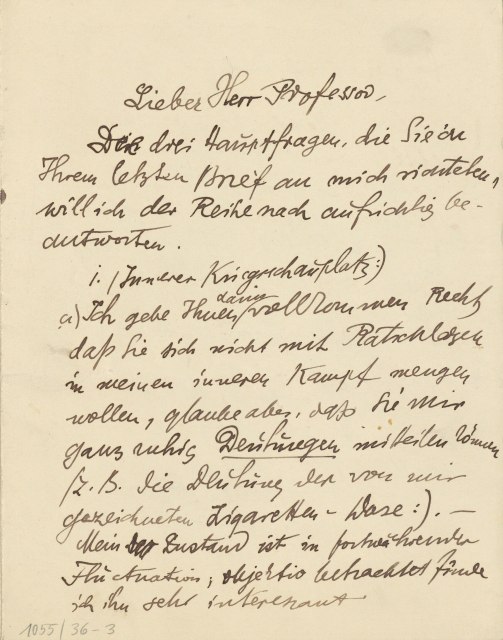 Lieber Herr Professor,
Die drei Hauptfragen, die Sie in
Ihrem letzten Brief an mich richteten,
will ich der Reihe nach aufrichtig be-
antworten.
1. (Innerer Kriegsschauplatz:)
a) Ich gebe Ihnen darin vollkommen Recht
daß Sie sich nicht mit Ratschlägen
in meinen inneren Kampf mengen
wollen, glaube aber, daß Sie mir
ganz ruhig Deutungen mitteilen können
(z. B. die Deutung der von mir
gezeichneten Zigaretten-Dose:). —
Mein Zustand ist in fortwährender
Fluctuation; objektiv betrachtet finde
ich ihn sehr interessant
1055/36-3